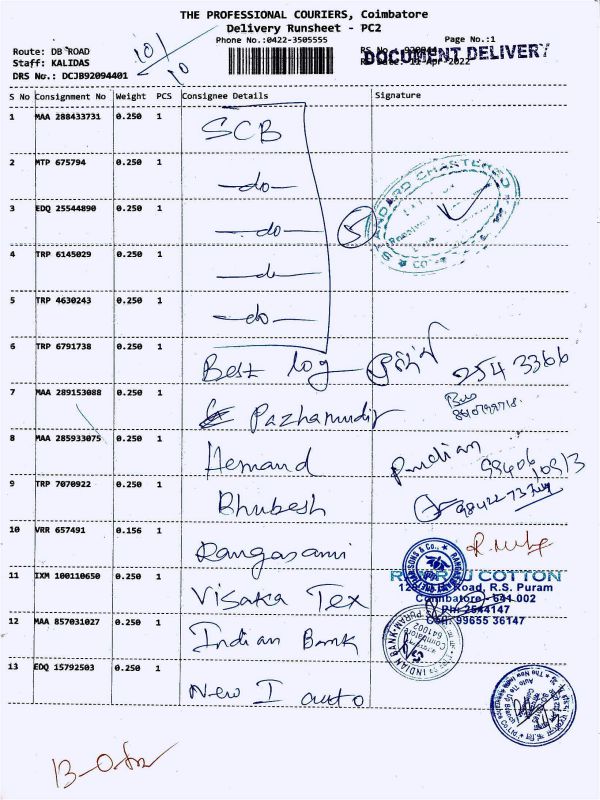 THE PROFESSIONAL COURIERS, Coimbatore
Delivery Runsheet - PC2
Phone No.:0422-3505555
Page No.:1
Route: DB ROAD
Staff: KALIDAS
DRS No.: DCJB92094401
10/10
DOCUMENT DELIVERY
12-Apr-2022
S No Consignment No Weight PCS Consignee Details Signature
1 MAA 288433731 0.250 1 SCB
2 MTP 675794 0.250 1 -do-
3 EDQ 25544890 0.250 1 -do-
4 TRP 6145029 0.250 1 -do-
5 TRP 4630243 0.250 1 -do-
5
STANDARD CHARTERED
6 TRP 6791738 0.250 1 Best log 254 3366
7 MAA 289153088 0.250 1 Pazhamudir
8 MAA 285933075 0.250 1 Hemand
9 TRP 7070922 0.250 1 Bhubesh
10 VRR 657491 0.156 1 Rangasami
11 IXM 100110650 0.250 1 Visaka Tex
COTTON
Road, R.S. Puram
Coimbatore - 641 002
Ph: 2544147
Cell: 99655 36147
12 MAA 857031027 0.250 1 Indian Bank
INDIAN BANK
13 EDQ 15792503 0.250 1 New I auto